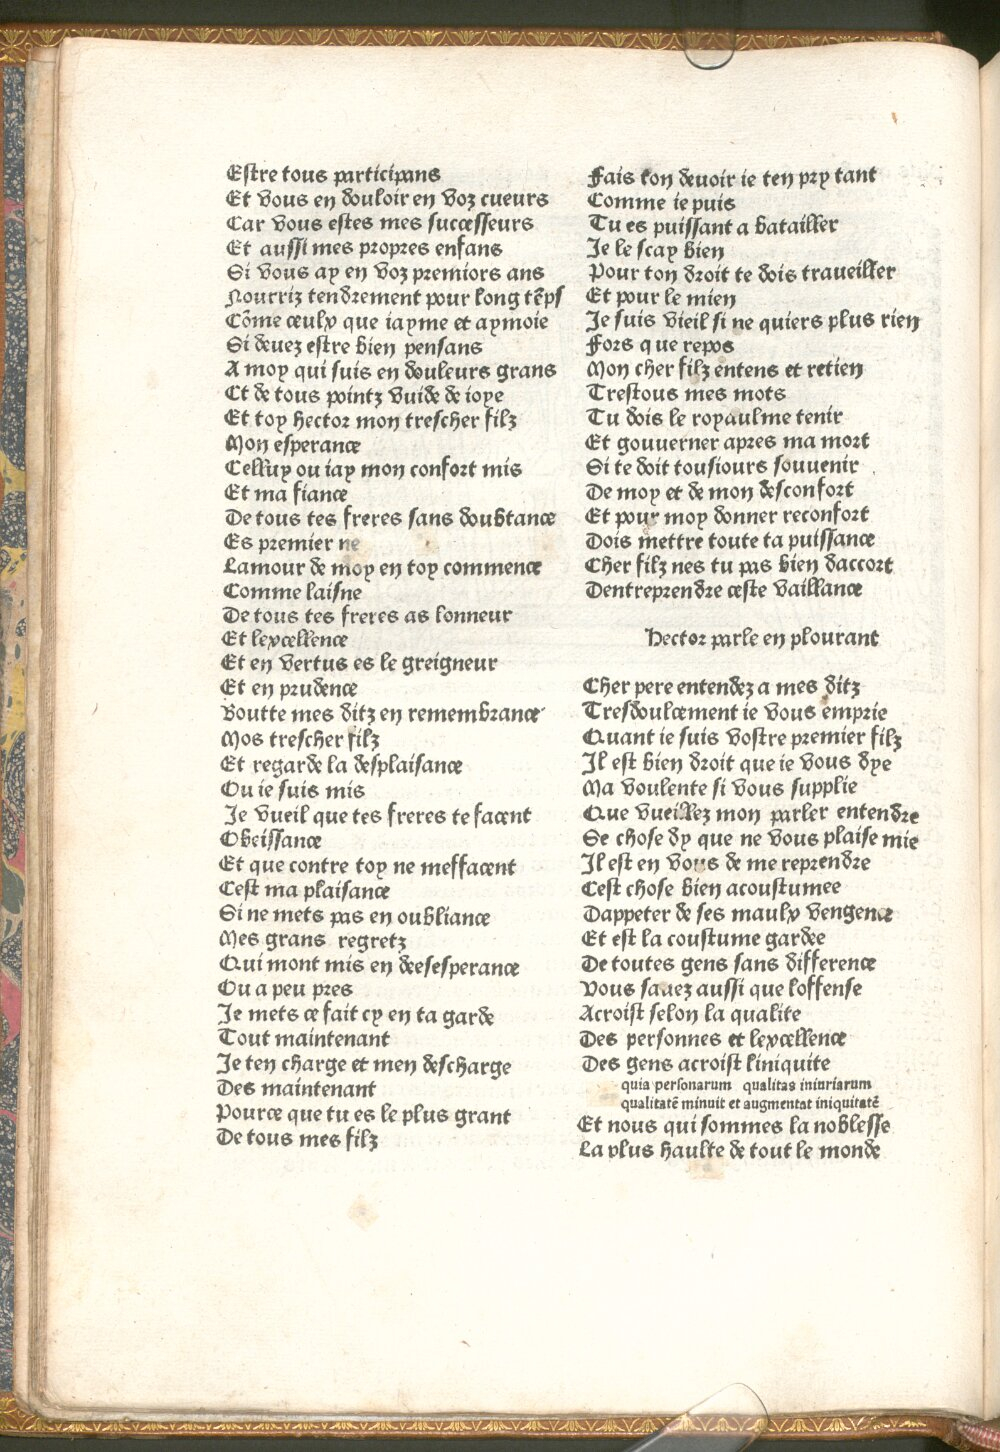 Estre tous participans
Et vous en douloir en voz cueurs
Car vous estes mes successeurs
Et aussi mes propres enfans
Si vous ay en voz premiors ans
Nourriz tendrement pour long tēps
Cōme ceulx que iayme et aymoie
Si devez estre bien pensans
A moy qui suis en douleurs grans
Ct de tous pointz vuide de ioye
Et toy hector mon trescher filz
Mon esperance
Celluy ou iay mon confort mis
Et ma fiance
De tous tes freres sans doubtance
Es premier ne
Lamour de moy en toy commence
Comme laisne
De tous tes freres as lonneur
Et lexcellence
Et en vertus es le greigneur
Et en prudence
Boutte mes ditz en remembrance
Mos trescher filz
Et regarde la desplaisance
Ou ie suis mis
Je vueil que tes freres te facent
Obeissance
Et que contre toy ne meffacent
Cest ma plaisance
Si ne mets pas en oubliance
Mes grans regretz
Qui mont mis en deesesperance
Ou a peu pres
Je mets ce fait cy en ta garde
Tout maintenant
Je ten charge et men descharge
Des maintenant
Pource que tu es le plus grant
De tous mes filz
Fais ton devoir ie ten pry tant
Comme ie puis
Tu es puissant a batailler
Je le scay bien
Pour ton droit te dois traveiller
Et pour le mien
Je suis vieil si ne quiers plus rien
Fors que repos
Mon cher filz entens et retien
Trestous mes mots
Tu dois le royaulme tenir
Et gouverner apres ma mort
Si te doit tousiours souvenir
De moy et de mon desconfort
Et pour moy donner reconfort
Dois mettre toute ta puissance
Cher filz nes tu pas bien daccort
Dentreprendre ceste vaillance
Hector parle en plourant
Cher pere entendez a mes ditz
Tresdoulcement ie vous emprie
Quant ie suis vostre premier filz
Il est bien droit que ie vous dye
Ma voulente si vous supplie
Que vueillez mon parler entendre
Se chose dy que ne vous plaise mie
Il est en vous de me reprendre
Cest chose bien acoustumee
Dappeter de ses maulx vengence
Et est la coustume gardee
De toutes gens sans difference
Vous savez aussi que loffense
Acroist selon la qualite
Des personnes et lexcellence
Des gens acroist liniquite
quia personarum qualitas iniuriarum
qualitatē minuit et augmentat iniquitatē
Et nous qui sommes la noblesse
La plus haulte de tout le monde